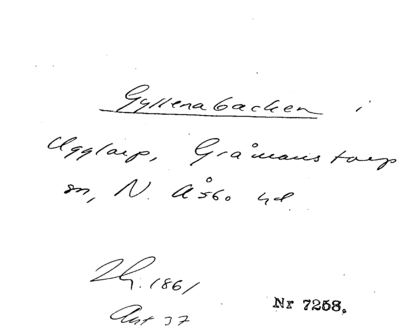 Gyllenabacken i
Ugglarp, Gråmanstorp
sn, N. Åsbo hd.
Zh. 1861
Ant 37
Nr 7258.